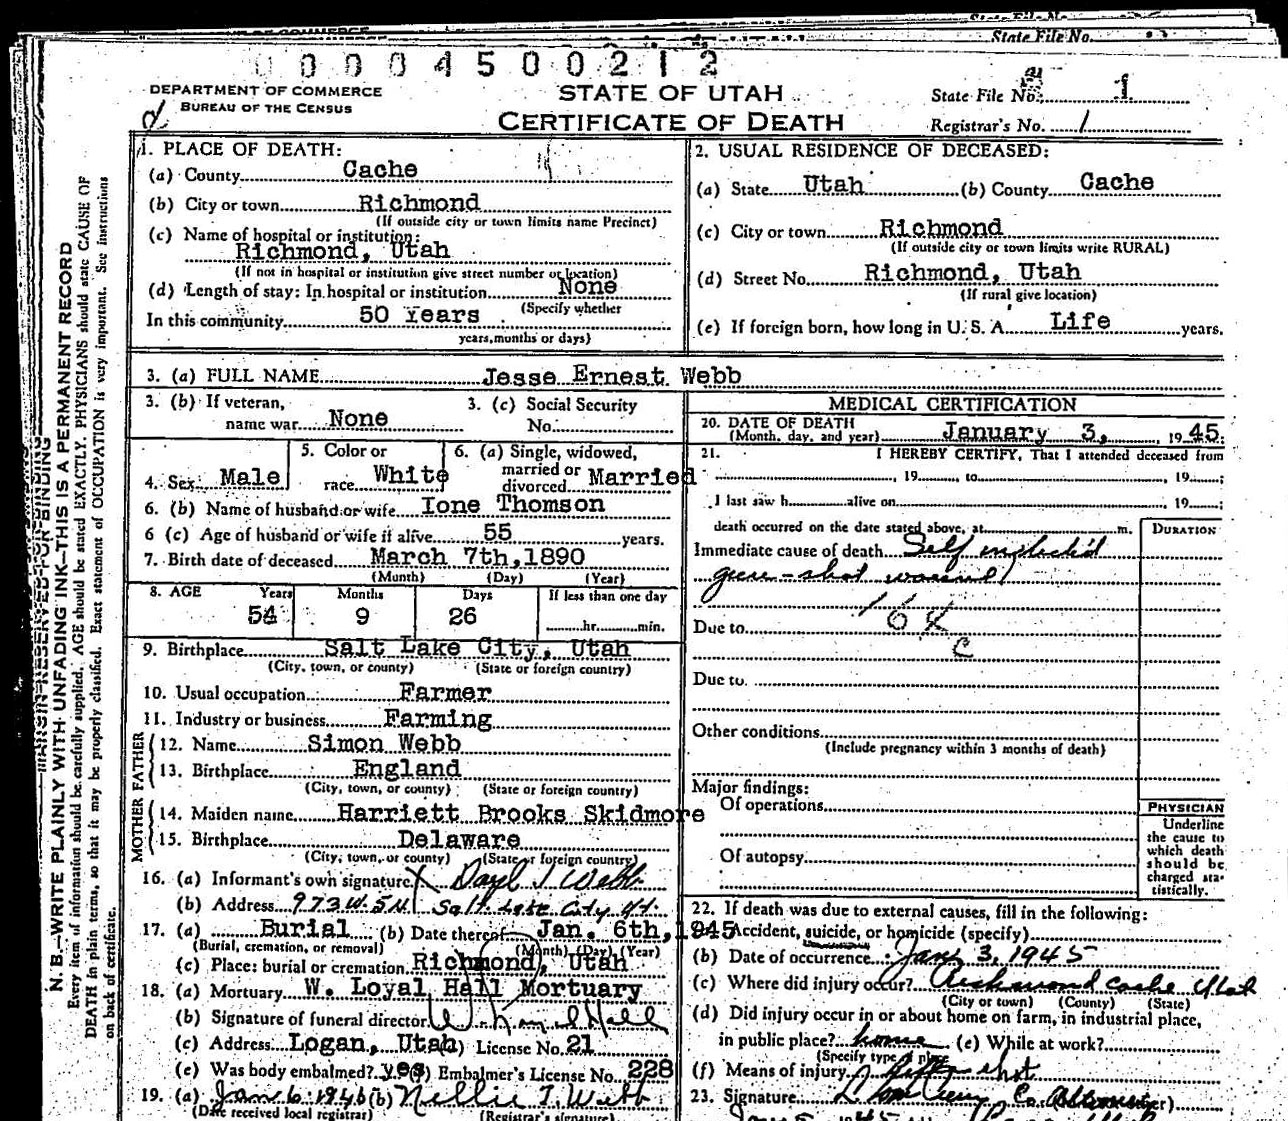 State File No.
0 0 0 0 4 5 0 0 2 1 2
DEPARTMENT OF COMMERCE
BUREAU OF THE CENSUS
STATE OF UTAH
CERTIFICATE OF DEATH
State File No. 1
Registrar's No. 1
MARGIN RESERVED FOR BINDING
N. B.—WRITE PLAINLY WITH UNFADING INK—THIS IS A PERMANENT RECORD
Every item of information should be carefully supplied. AGE should be stated EXACTLY. PHYSICIANS should state CAUSE OF
DEATH in plain terms, so that it may be properly classified. Exact statement of OCCUPATION is very important. See instructions
on back of certificate.
1. PLACE OF DEATH:
(a) County Cache
(b) City or town Richmond
(If outside city or town limits name Precinct)
(c) Name of hospital or institution:
Richmond, Utah
(If not in hospital or institution give street number or location)
(d) Length of stay: In hospital or institution None
(Specify whether
In this community 50 Years
years, months or days)
2. USUAL RESIDENCE OF DECEASED:
(a) State Utah (b) County Cache
(c) City or town Richmond
(If outside city or town limits write RURAL)
(d) Street No. Richmond, Utah
(If rural give location)
(e) If foreign born, how long in U. S. A. Life years.
3. (a) FULL NAME Jesse Ernest Webb
3. (b) If veteran,
name war None
3. (c) Social Security
No.
4. Sex Male
5. Color or
race White
6. (a) Single, widowed,
married or
divorced Married
6. (b) Name of husband or wife Ione Thomson
6 (c) Age of husband or wife if alive 55 years.
7. Birth date of deceased March 7th, 1890
(Month) (Day) (Year)
8. AGE Years Months Days If less than one day
54 9 26 hr. min.
9. Birthplace Salt Lake City, Utah
(City, town, or county) (State or foreign country)
10. Usual occupation Farmer
11. Industry or business Farming
FATHER
12. Name Simon Webb
13. Birthplace England
(City, town, or county) (State or foreign country)
MOTHER
14. Maiden name Harriett Brooks Skidmore
15. Birthplace Delaware
(City, town, or county) (State or foreign country)
16. (a) Informant's own signature X Daryl J Webb
(b) Address 973 W. 5 N. Salt Lake City Ut.
17. (a) Burial (b) Date thereof Jan. 6th, 1945
(Burial, cremation, or removal) (Month) (Day) (Year)
(c) Place: burial or cremation Richmond, Utah
18. (a) Mortuary W. Loyal Hall Mortuary
(b) Signature of funeral director W. Loyal Hall
(c) Address Logan, Utah License No. 21
(e) Was body embalmed? yes Embalmer's License No. 228
19. (a) Jan 6 1946 (b) Nellie T. Webb
(Date received local registrar) (Registrar's signature)
MEDICAL CERTIFICATION
20. DATE OF DEATH
(Month, day, and year) January 3, 1945;
21. I HEREBY CERTIFY, That I attended deceased from
, 19 , to , 19 ;
I last saw h alive on , 19 ;
death occurred on the date stated above, at m.
DURATION
Immediate cause of death Self inflected
gun-shot wound
Due to 164
C
Due to
Other conditions
(Include pregnancy within 3 months of death)
Major findings:
Of operations
Of autopsy
PHYSICIAN
Underline
the cause to
which death
should be
charged sta-
tistically.
22. If death was due to external causes, fill in the following:
Accident, suicide, or homicide (specify)
(b) Date of occurrence Jan 3, 1945
(c) Where did injury occur? Richmond Cache Utah
(City or town) (County) (State)
(d) Did injury occur in or about home on farm, in industrial place,
in public place? home (e) While at work?
(Specify type of place)
(f) Means of injury shot
23. Signature